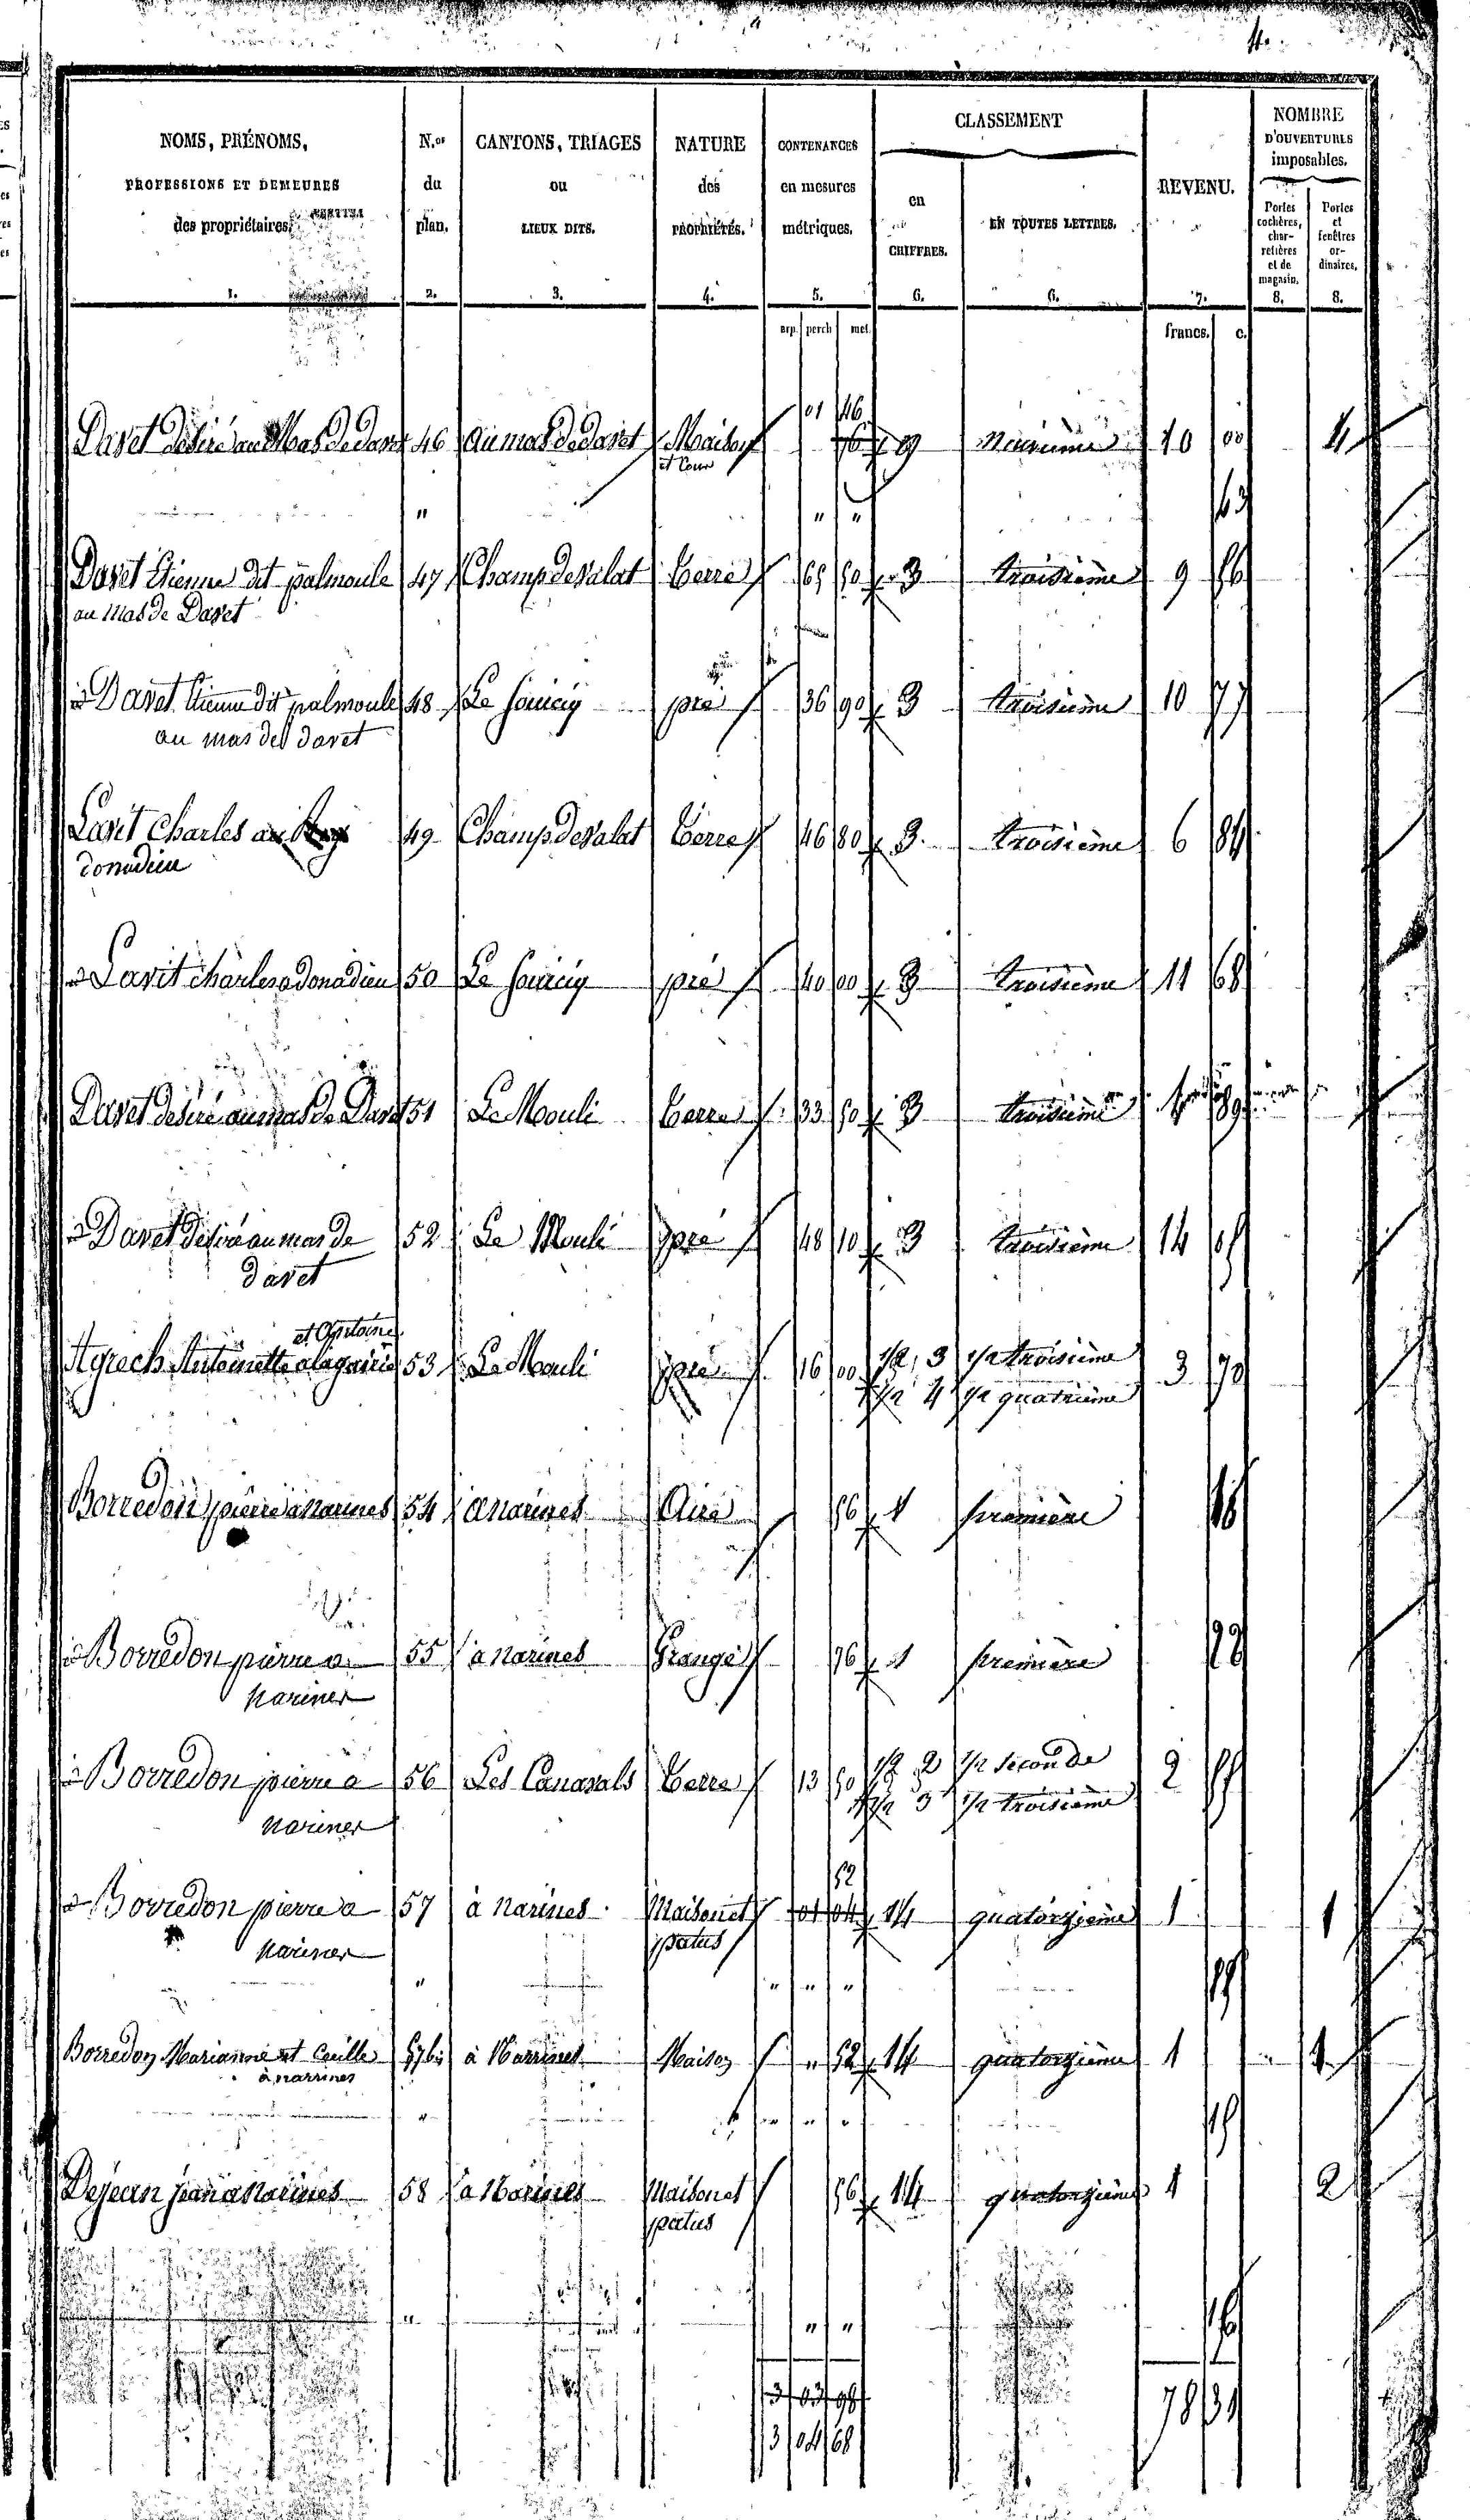 4.
NOMS, PRÉNOMS,
PROFESSIONS ET DEMEURES
des propriétaires.
1.
N.os
du
plan.
2.
CANTONS, TRIAGES
ou
LIEUX DITS.
3.
NATURE
des
PROPRIÉTÉS.
4.
CONTENANCES
en mesures
métriques.
5.
CLASSEMENT
en
CHIFFRES.
6.
EN TOUTES LETTRES.
6.
REVENU.
7.
NOMBRE
D'OUVERTURES
imposables.
Portes
cochères,
char-
retières
et de
magasin.
8.
Portes
et
fenêtres
or-
dinaires.
8.
arp. perch mèt. francs. c.
01 46
Davet désiré au Mas de davet 46 au mas de davet Maison 76 9 Neuvième 10 00 4
et Cour
" " " 63
Davet Etienne dit palmoule 47 Champ de salat terre 65 50 3 troisième 9 56
au Mas de Davet
id Davet Etienne dit palmoule 48 Le pré 36 90 3 troisième 10 77
au mas de davet
Lavit Charles 49 Champ de salat terre 46 80 3. troisième 6 84
donadieu
id Lavit charles a donadieu 50 Le pré 40 00 3 troisième 11 68
Davet désiré au mas de Davet 51 Le Mouli terre 33 50 3 troisième 89
id Davet désiré au mas de 52 Le Mouli pré 48 10 3 troisième 14 05
davet
et Antoine
Agrech Antoinette 53 Le Mouli pré 16 00 1/2 3 1/2 troisième 3 70
1/2 4 1/2 quatrième
Borredon pierre a Narines 54 a Narines Aire 56 1 première 16
id Borredon pierre a 55 à Narines Grange 76 1 première 22
Narines
id Borredon pierre a 56 Les Canavals terre 13 50 1/2 2 1/2 seconde 2
Narines 1/2 3 1/2 troisième
52
id Borredon pierre a 57 à Narines Maison et 01 04 14 quatorzième 1 1
Narines patus
" " " " 15
Borredon Marianne et Cécille 57 bis à Narrines Maison " 52 14 quatorzième 1 1
à narrines
" " " " 15
Dejean jean a Narines 58 a Narines Maison et 56 14 quatorzième 1 2
patus
" " " 16
3 03 98
3 04 68 78 31